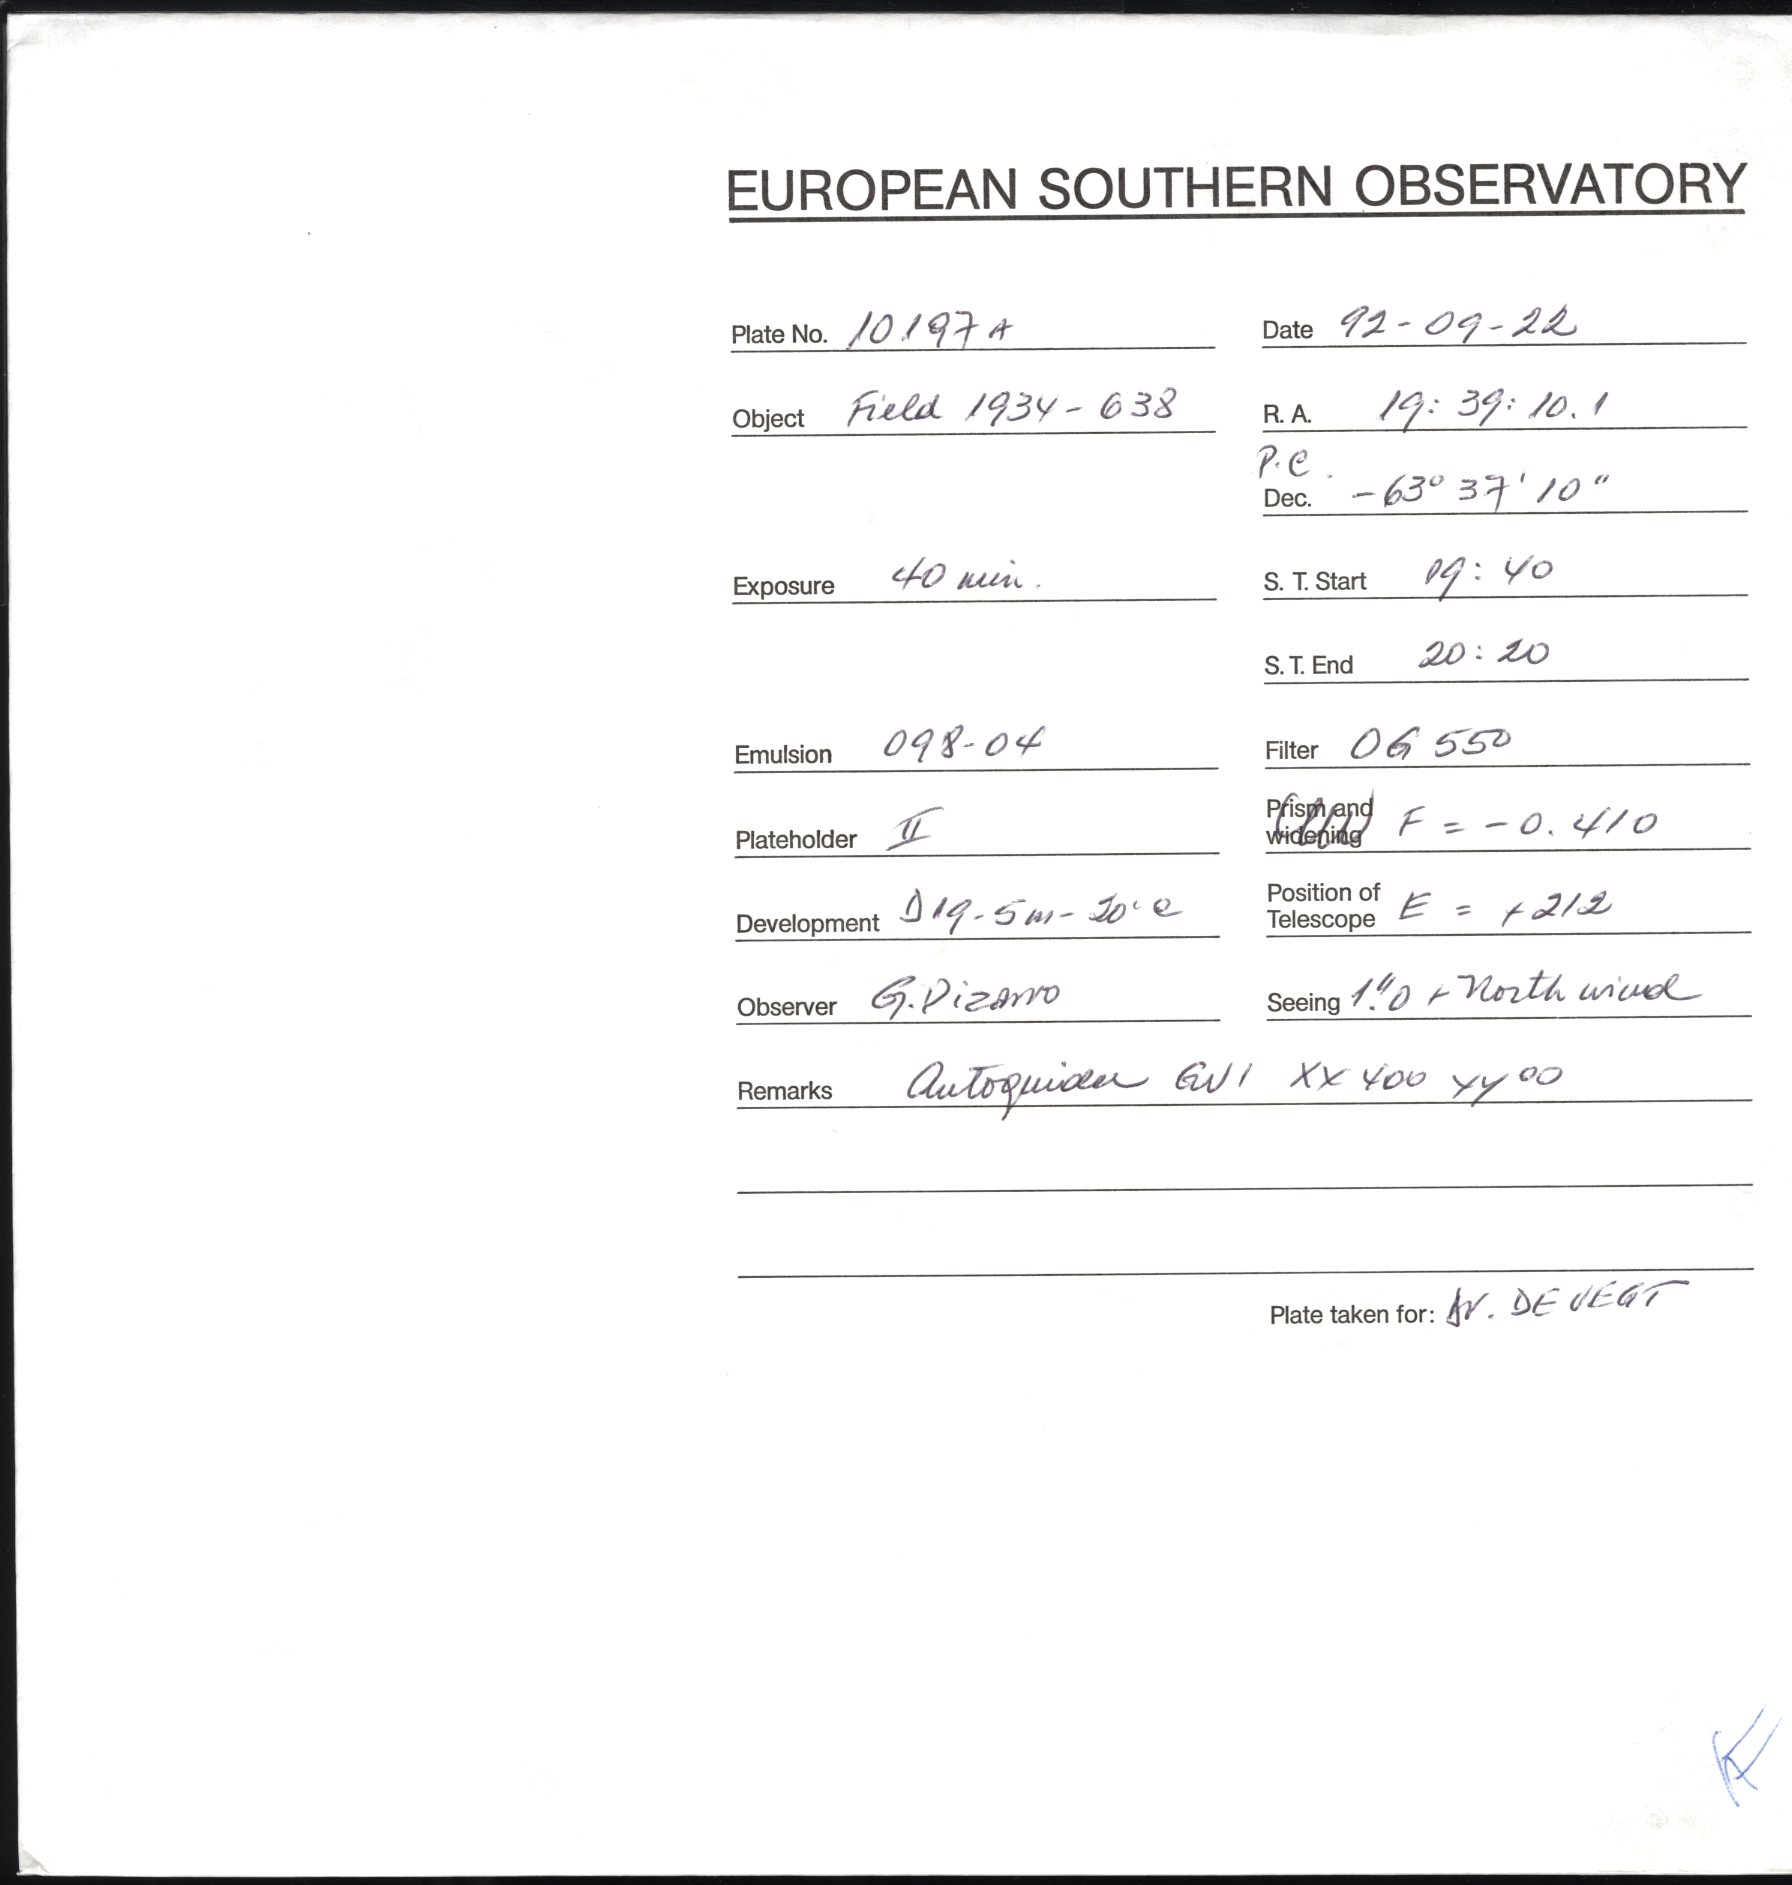 EUROPEAN SOUTHERN OBSERVATORY
Plate No. 10197A Date 92-09-22
Object Field 1934-638 R. A. 19: 39: 10.1
P.C.
Dec. -63° 37' 10"
Exposure 40 min. S. T. Start 19: 40
S. T. End 20: 20
Emulsion 098-04 Filter OG 550
Plateholder II Prism and widening F = -0.410
Development D19-5m-20°C Position of Telescope E = +212
Observer G. Pizarro Seeing 1."0 + North wind
Remarks Autoguider XX 400 yy 00
Plate taken for: Dr. DE VEGT